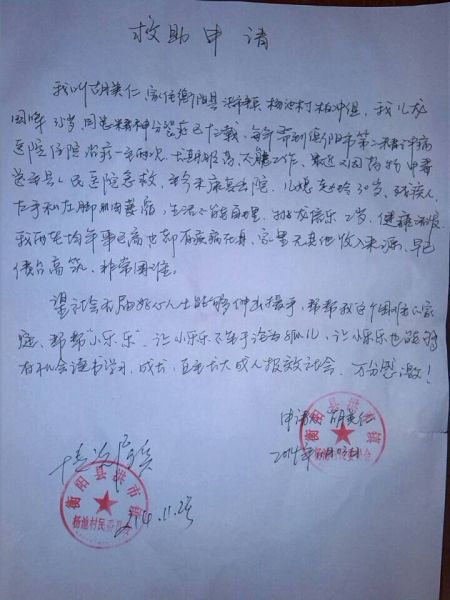 救助申请
我叫胡英仁,家住衡阳县洪市镇杨池村柏冲组,我儿龙
国晖35岁,因患精神分裂症已十二载,每年需到衡阳市第二精神病
医院住院治疗一至两次,长期服药,不能工作,最近又因药物中毒
送至县人民医院急救,至今未康复出院,儿媳30岁,残疾人,
左手和左脚肌肉萎缩,生活不能自理,孙龙信乐2岁,健康活泼,
我两老均年事已高也都有疾病在身,家里无其他收入来源,早已
债台高筑,非常困难。
望社会有爱心人士能够伸出援手,帮帮我这个困难的家
庭,帮帮“小乐乐”,让小乐乐不至于沦为孤儿,让小乐乐也能够
有机会读书学习,成长,直至长大成人报效社会,万分感激!
申请人 胡英仁
2014年11月
情况属实
2014.11.25
衡阳县洪市镇
杨池村民委员会
衡阳县洪市镇
杨池村民委员会